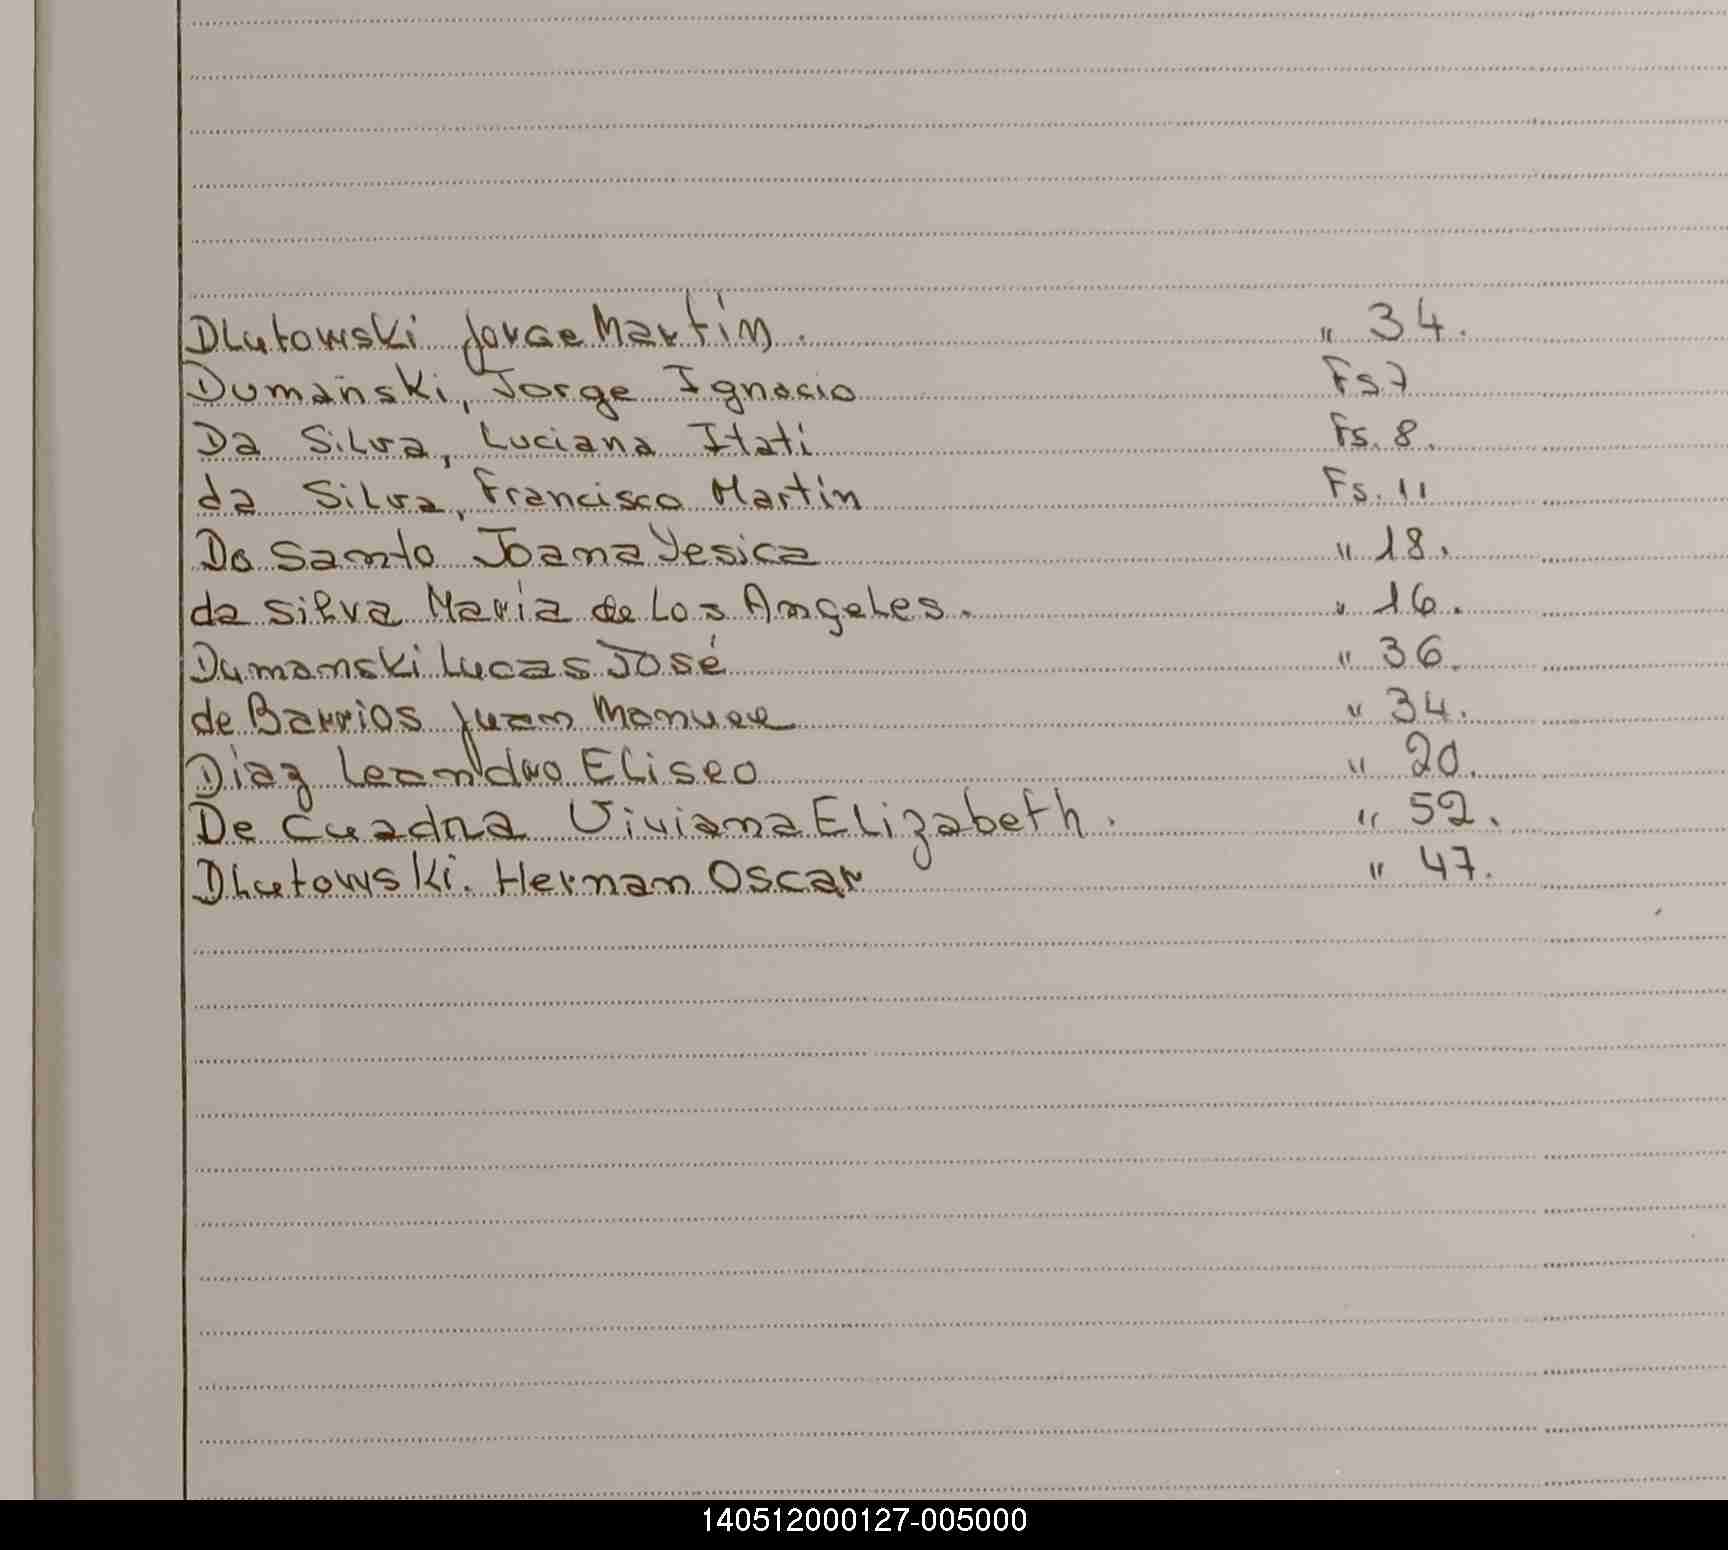 Dlutowski Jorge Martín. " 34.
Dumañski, Jorge Ignacio Fs 7
Da Silva, Luciana Itatí Fs. 8.
da Silva, Francisco Martín Fs. 11
Do Santo Joana Yesica " 18.
da Silva María de Los Angeles. " 16.
Dumanski Lucas José " 36.
de Barrios Juan Manuel " 34.
Díaz Leandro Eliseo " 20.
De Cuadra Viviana Elizabeth. " 52.
Dlutowski. Hernan Oscar " 47.
140512000127-005000